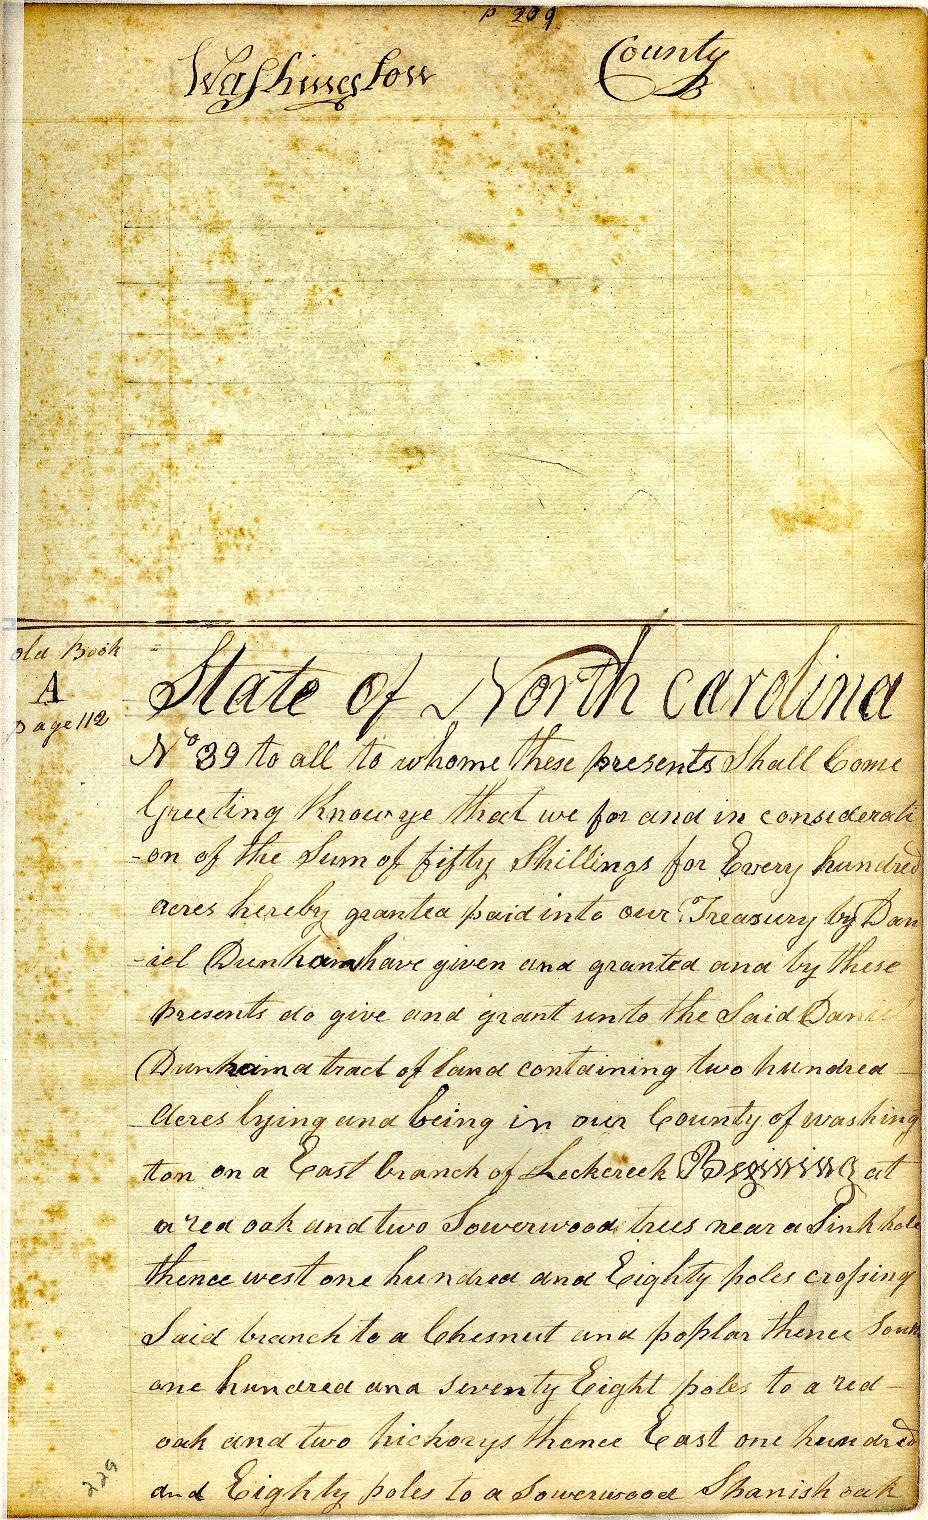 p 209
Washington County
old Book
A
page 112
State of North carolina
No 39 to all to whome these presents Shall Come
Greeting Know ye that we for and in considerati
-on of the Sum of fifty Shillings for Every hundred
acres hereby granted paid into our Treasury by Dan
-iel Dunham have given and granted and by these
presents do give and grant unto the Said Daniel
Dunham a tract of land containing two hundred
acres lying and being in our County of washing
ton on a East branch of Leckcreek Begining at
a red oak and two Sowerwood trees near a Sink hole
thence west one hundred and Eighty poles crossing
Said branch to a Chesnut and poplar thence South
one hundred and seventy Eight poles to a red
oak and two hickorys thence East one hundred
and Eighty poles to a Sowerwood Spanish oak
229